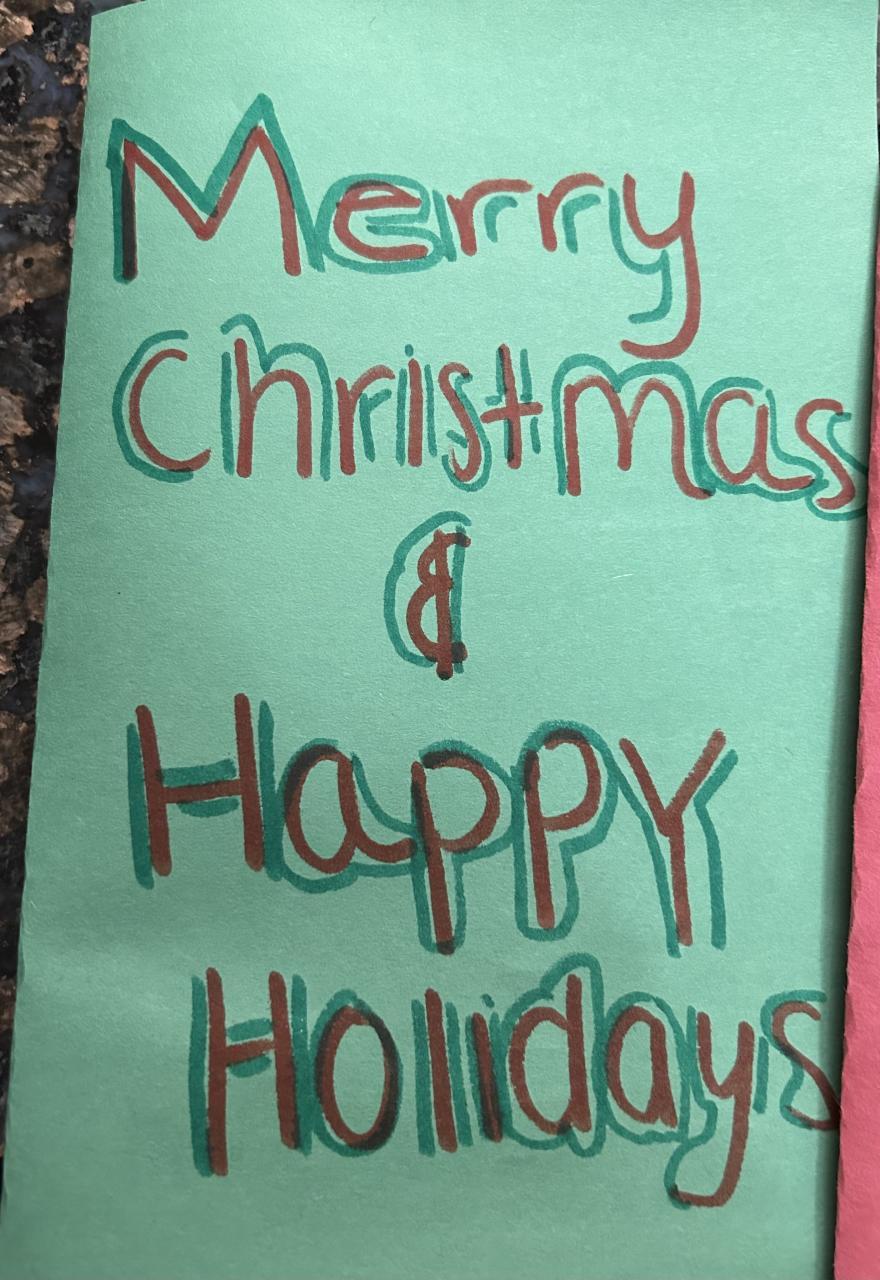 Merry
Christmas
&
Happy
Holidays